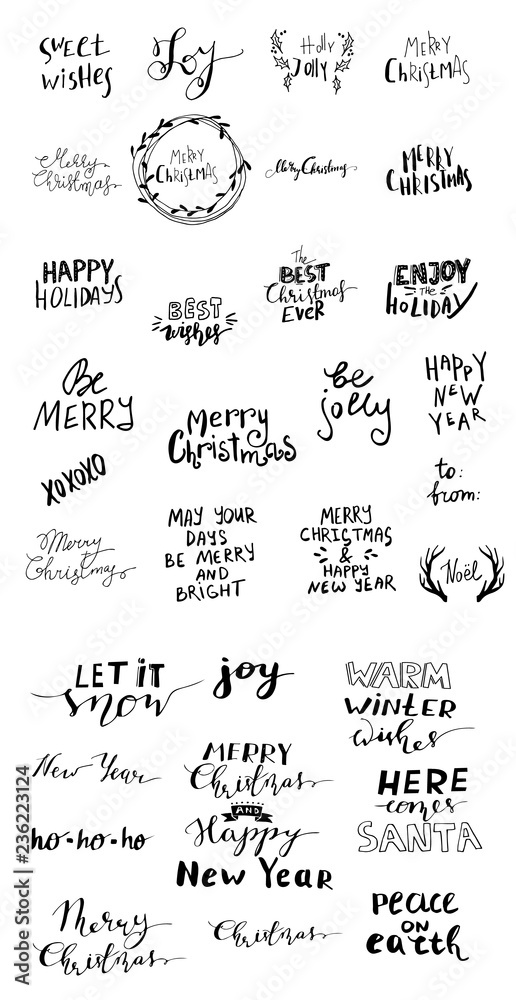 sweet
wishes
Joy
Holly
Jolly
Merry
Christmas
Merry
Christmas
Merry
Christmas
Merry Christmas
Merry
Christmas
HAPPY
HOLIDAYS
BEST
wishes
The
BEST
Christmas
EVER
ENJOY
the
HOLIDAY
Be
MERRY
Merry
Christmas
be
jolly
HAPPY
NEW
YEAR
XOXOXO
to:
from:
Merry
Christmas
MAY YOUR
DAYS
BE MERRY
AND
BRIGHT
MERRY
CHRISTMAS
&
HAPPY
NEW YEAR
Noël
LET iT
snow
joy
WARM
WiNTER
wishes
New Year
MERRY
Christmas
AND
Happy
New Year
HERE
comes
SANTA
ho-ho-ho
Merry
Christmas
Christmas
peace
ON
earth
Adobe Stock | #236223124